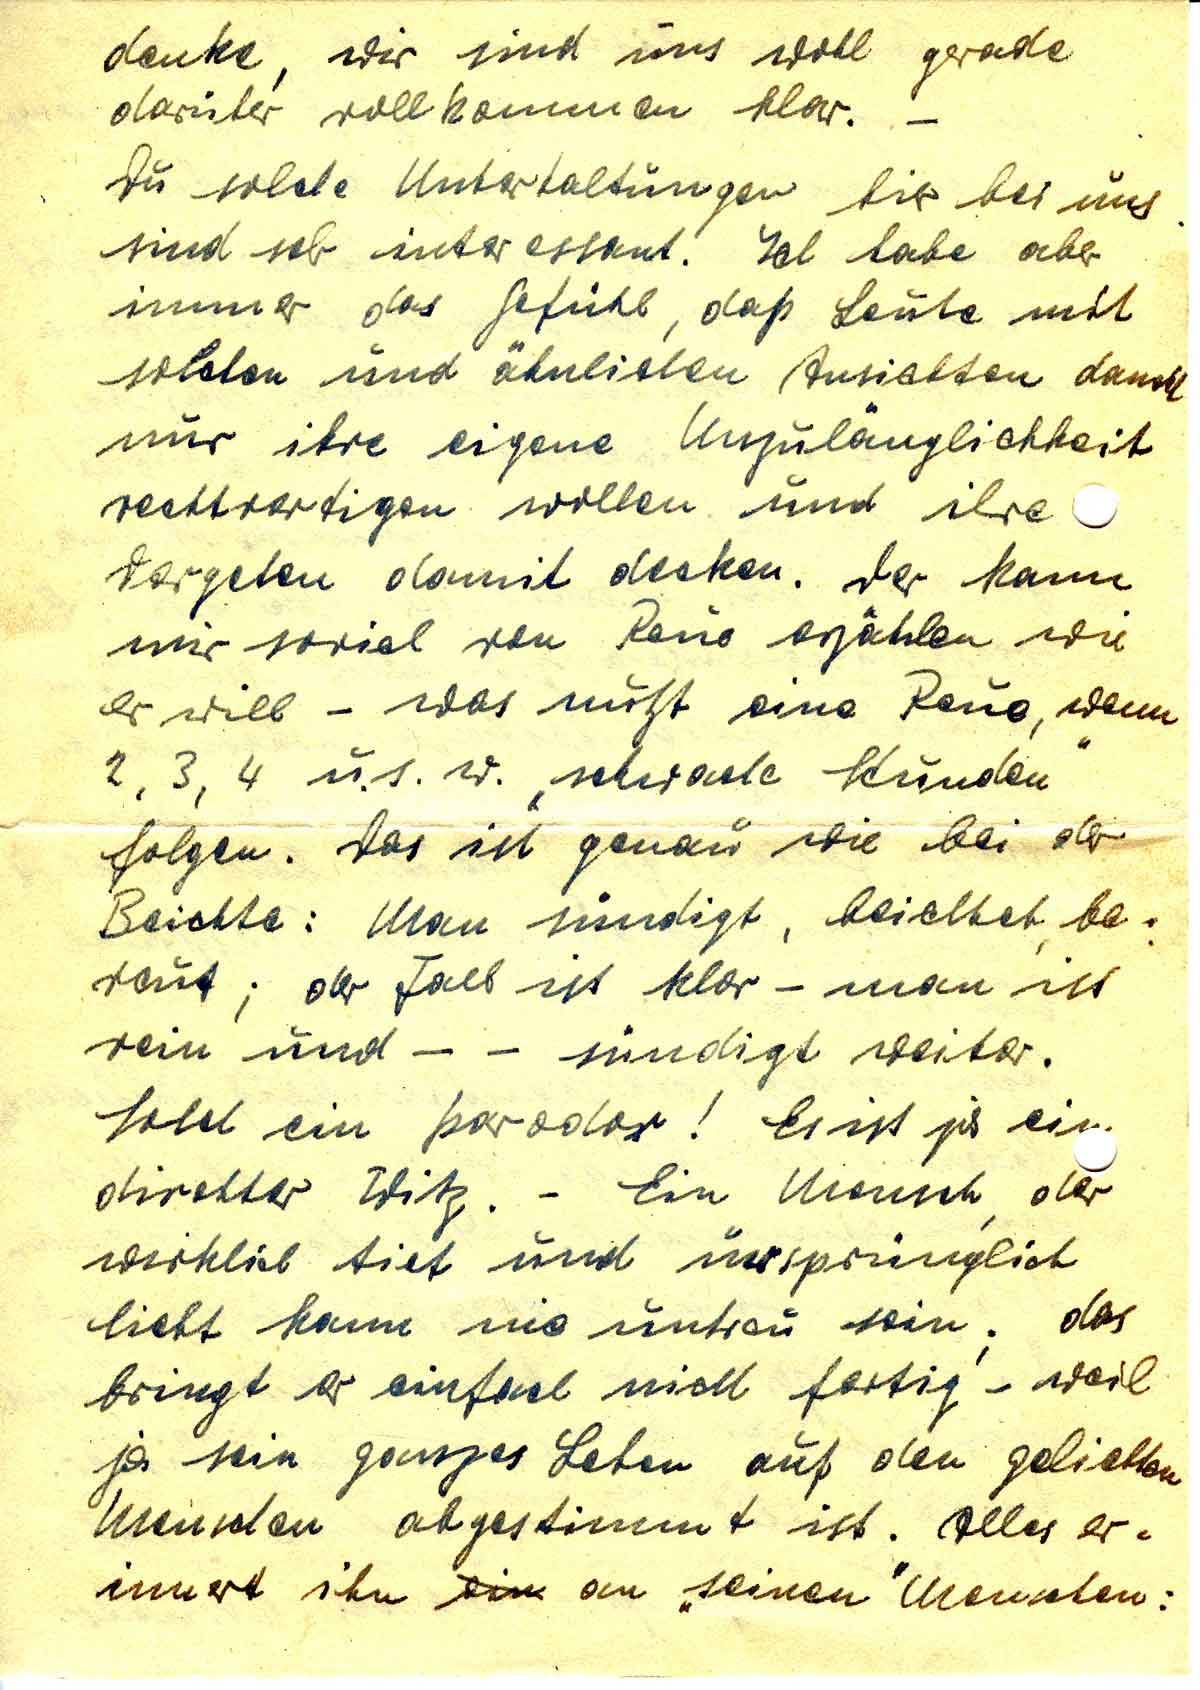 denke, wir sind uns wohl gerade
darüber vollkommen klar. –
Du solche Unterhaltungen hier bei uns
sind sehr interessant. Ich habe aber
immer das Gefühl, daß Leute mit
solchen und ähnlichen Ansichten damit
nur ihre eigene Unzulänglichkeit
rechtvertigen wollen und ihre
Vergehen damit decken. Der kann
mir soviel von Reue erzählen wie
er will – was nützt eine Reue, wenn
2, 3, 4 u.s.w. „schwache Stunden"
folgen. Das ist genau wie bei der
Beichte: Man sündigt, beichtet, be-
reut; der Fall ist klar – man ist
rein und – – sündigt weiter.
Solch ein paradox! Es ist ja ein
direkter Witz. – Ein Mensch, der
wirklich tief und ursprünglich
liebt kann nie untreu sein; das
bringt er einfach nicht fertig – weil
ja sein ganzes Leben auf den geliebten
Menschen abgestimmt ist. Alles er-
innert ihn ein an „seinen" Menschen: